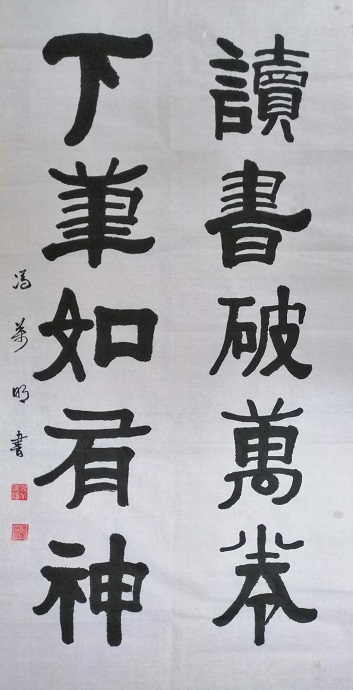 讀書破萬卷
下筆如有神
馮萬明書